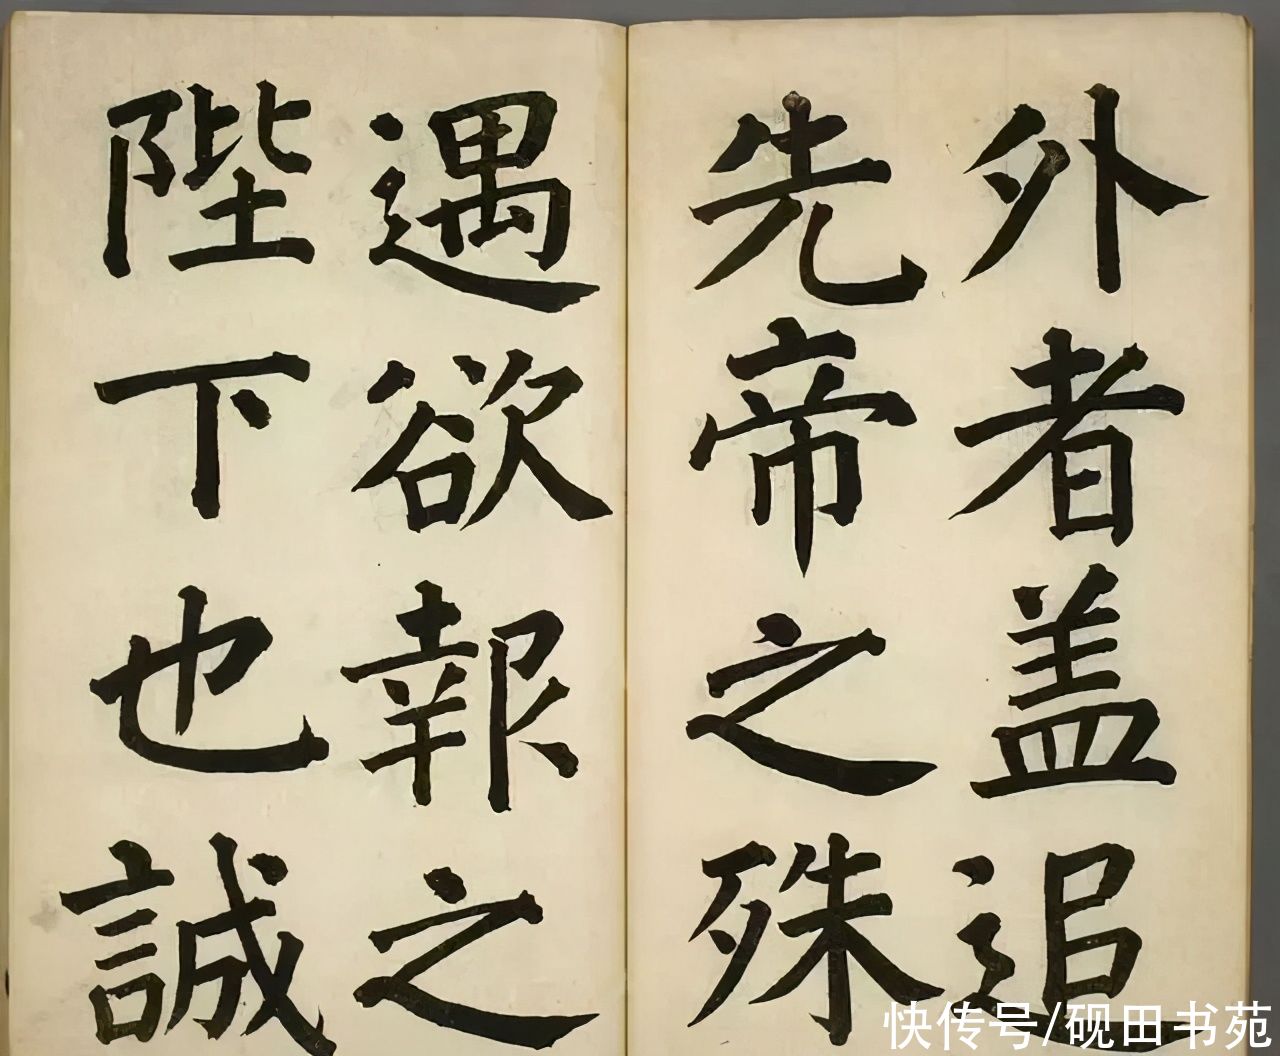 外者盖追
先帝之殊
遇欲報之
陛下也誠
快传号/砚田书苑